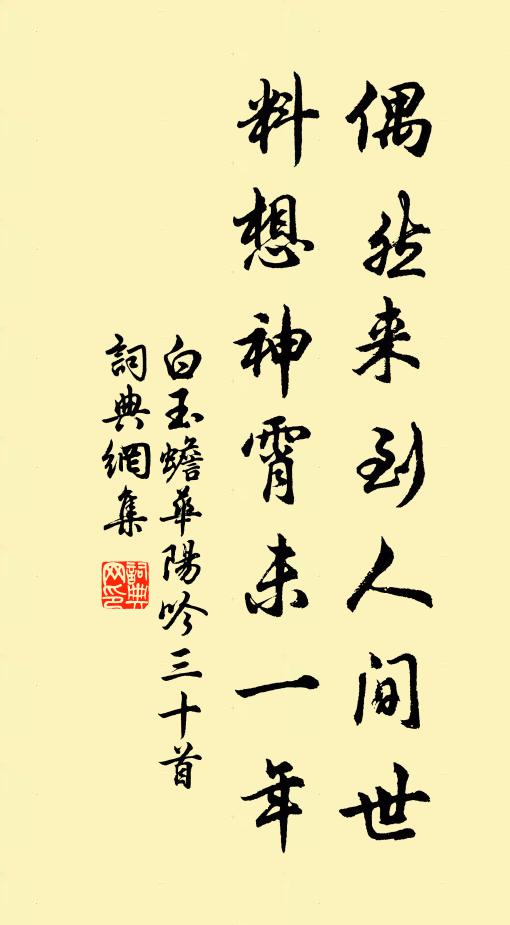 偶然来到人间世
料想神霄未一年
白玉蟾華陽吟三十首
詞典網集
詞典网印